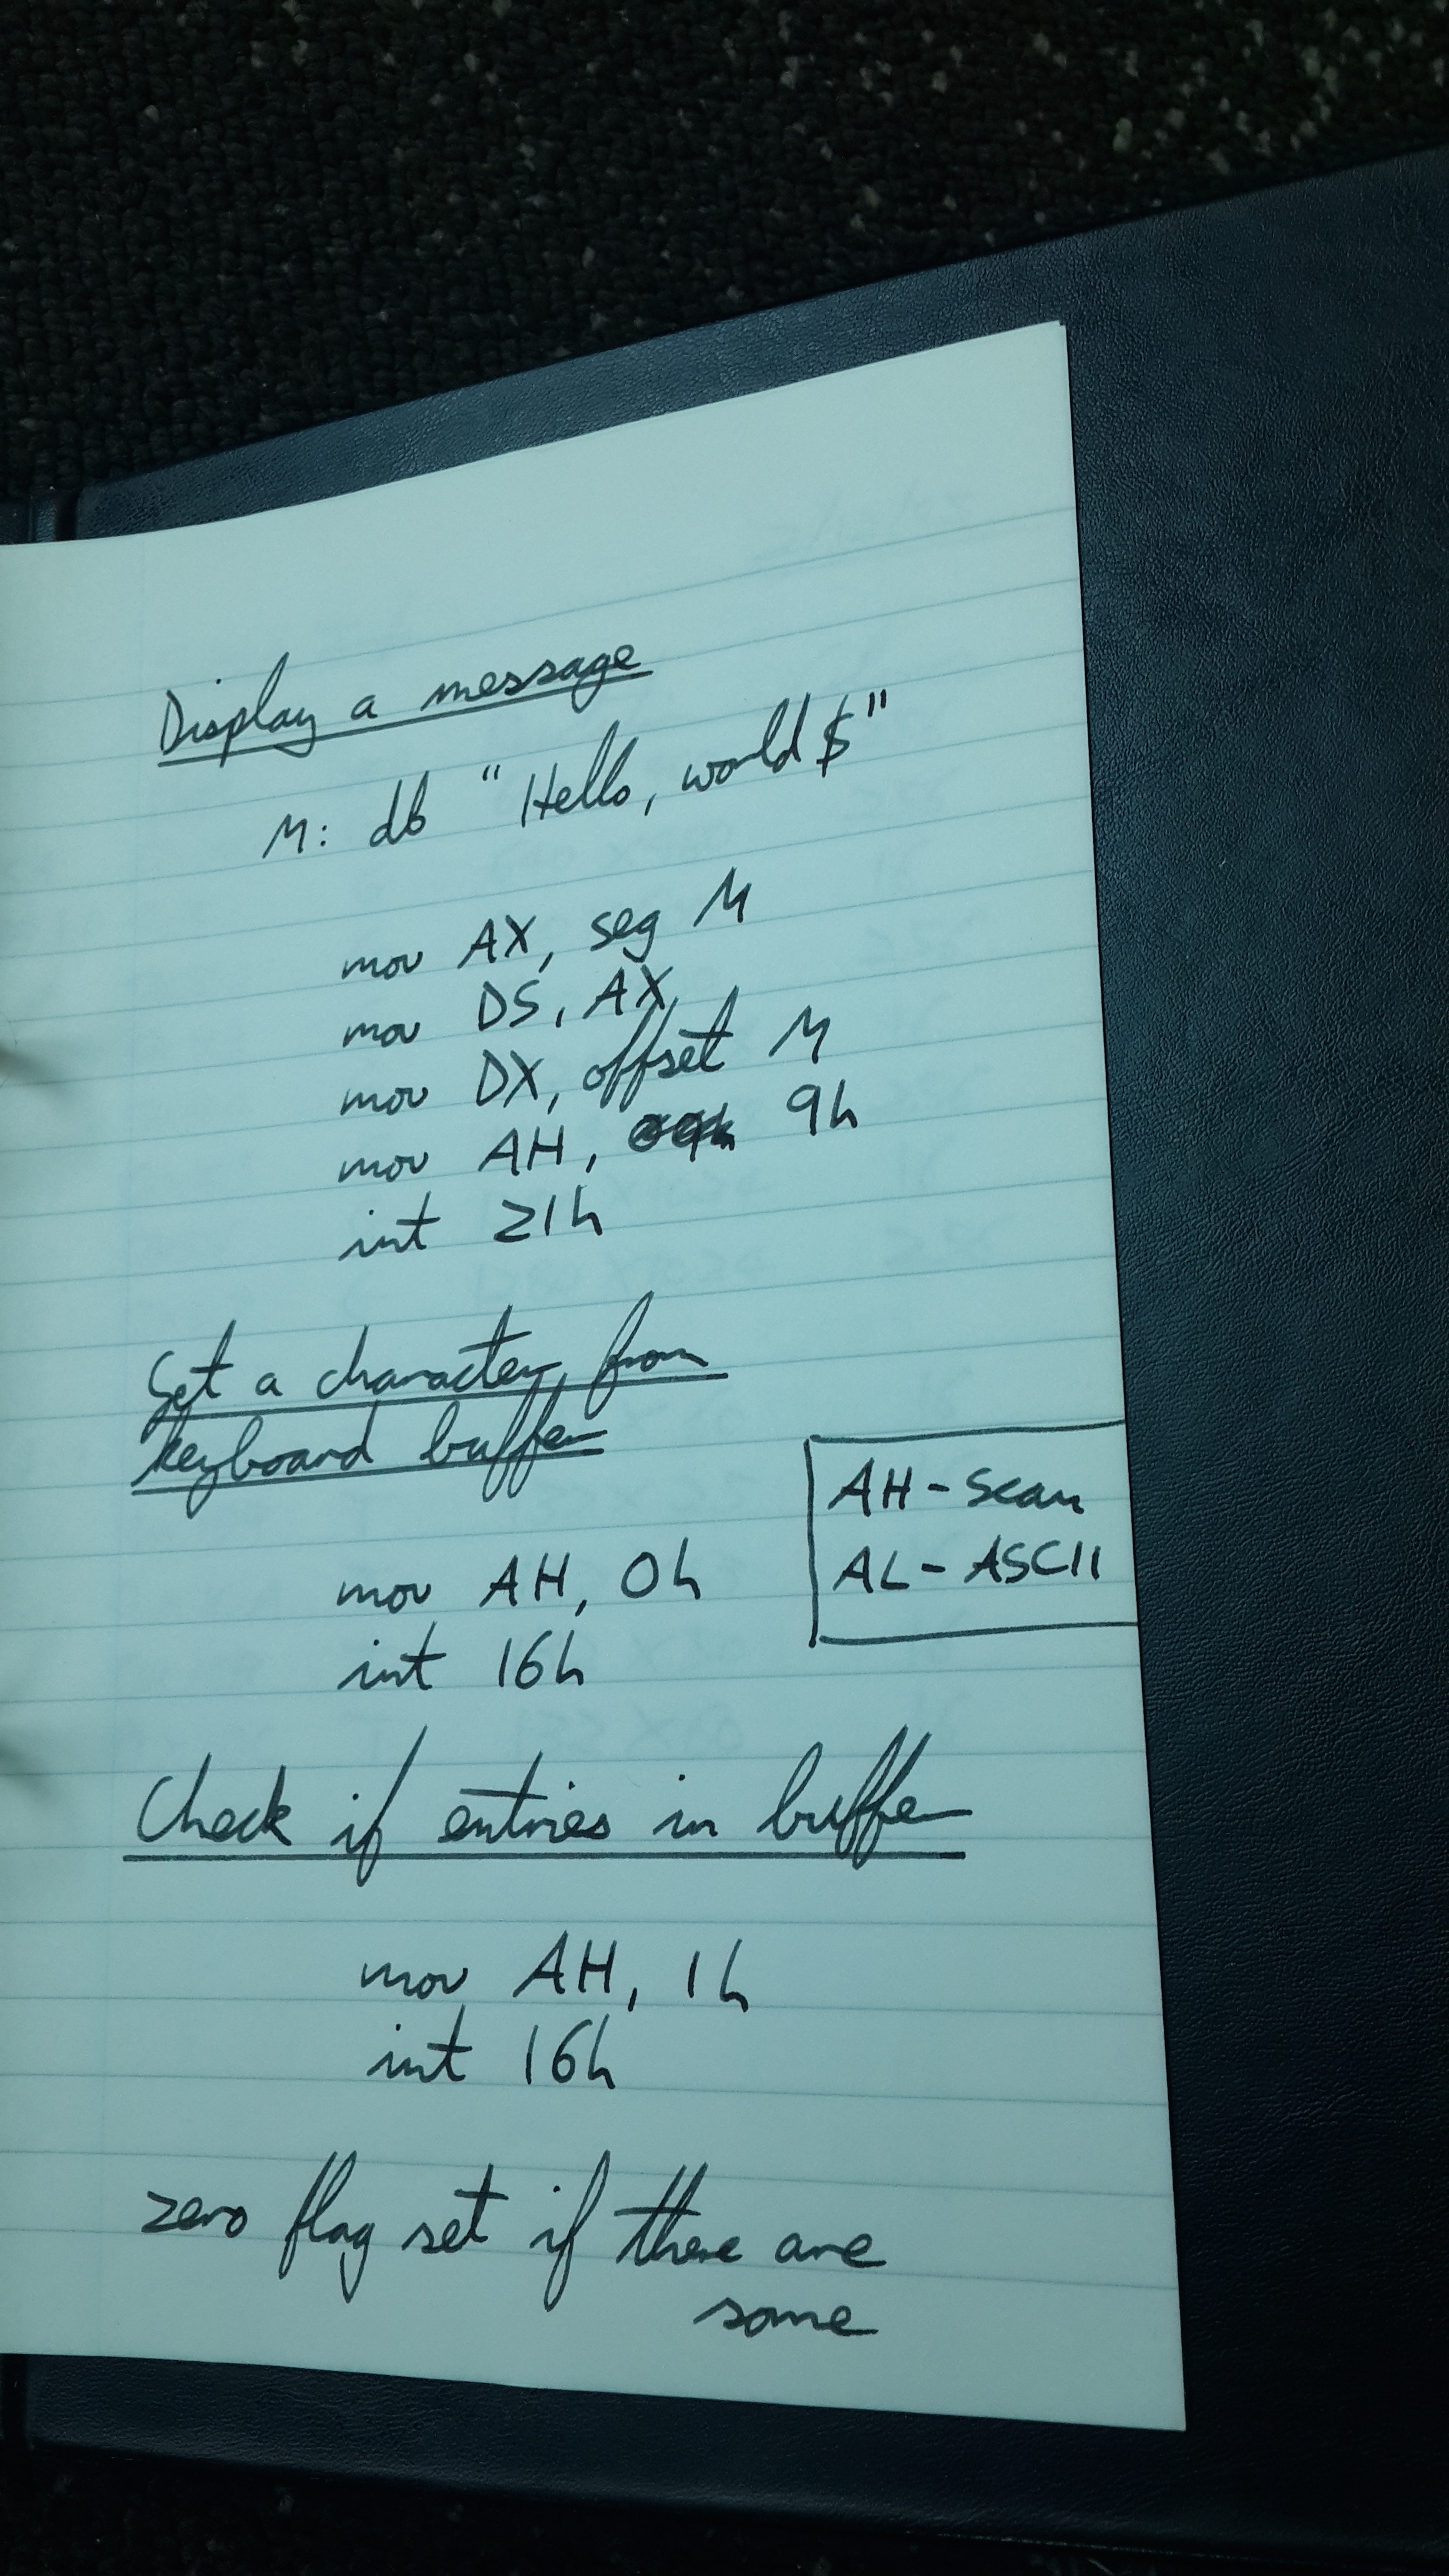 Display a message
M: db "Hello, world$"
mov AX, seg M
mov DS, AX
mov DX, offset M
mov AH, 9h
int 21h
Get a character from
keyboard buffer
mov AH, 0h
int 16h
AH - Scan
AL - ASCII
Check if entries in buffer
mov AH, 1h
int 16h
zero flag set if there are
some